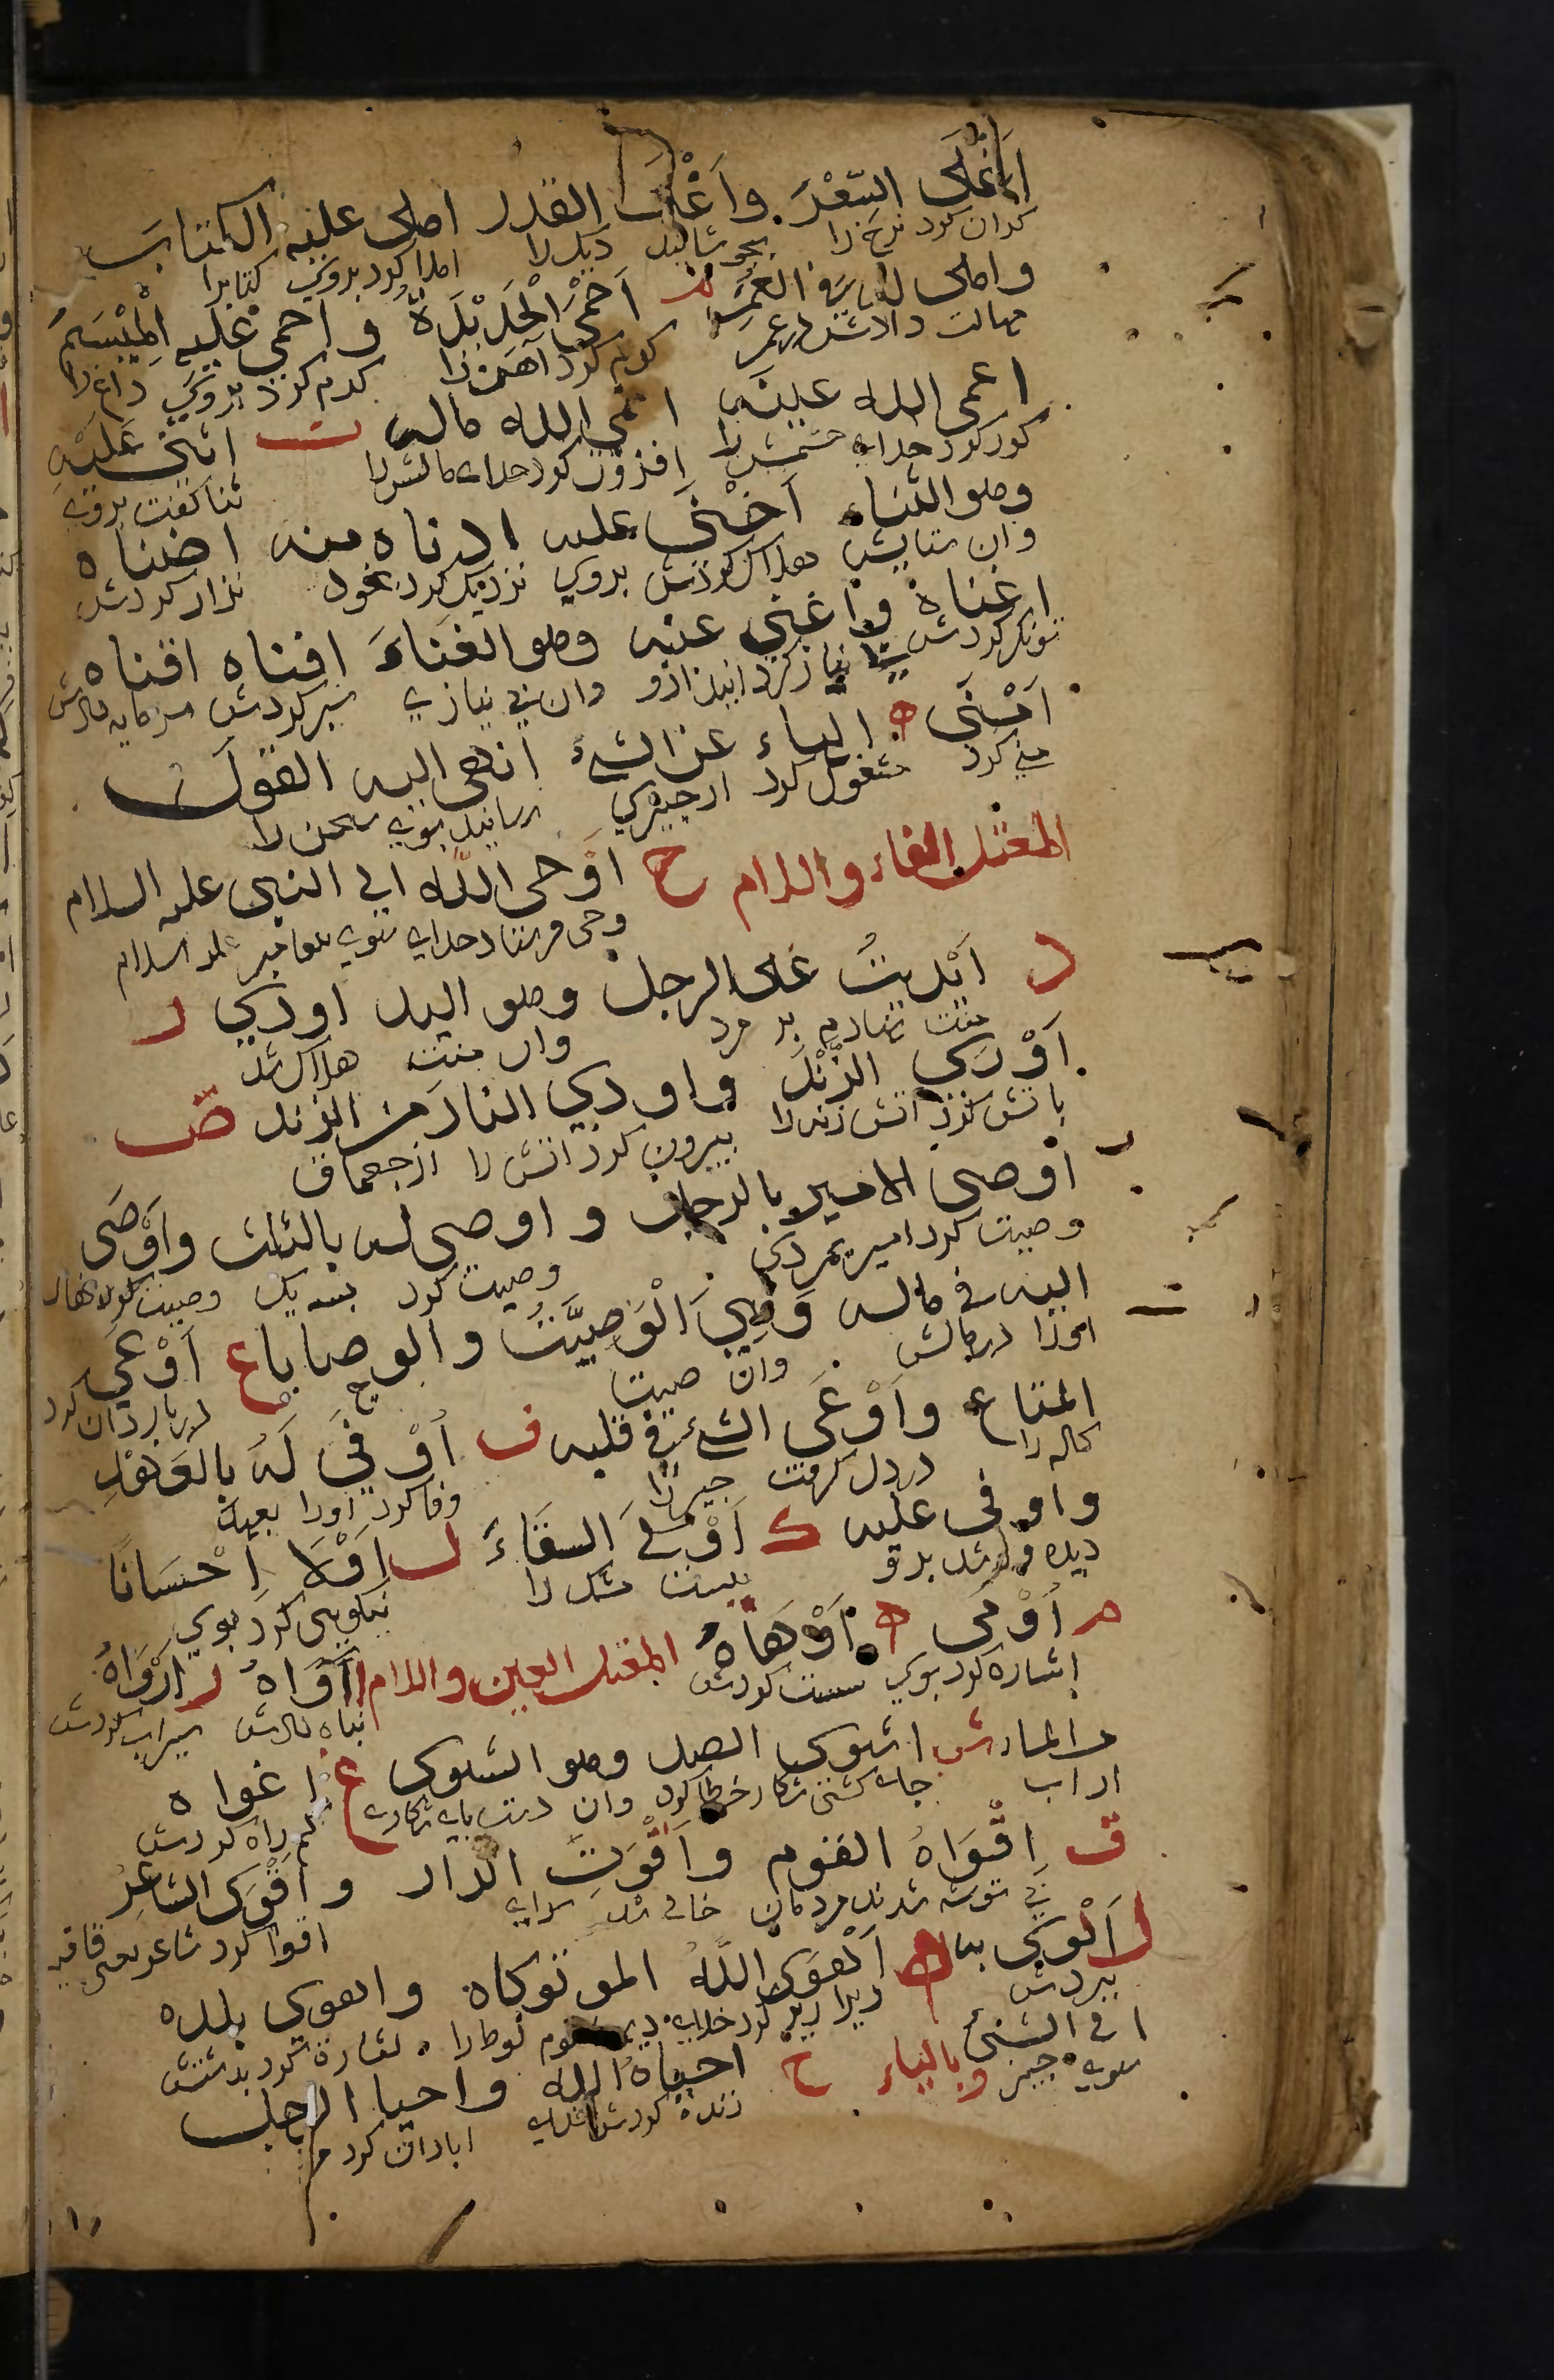 اَغْلَى السِّعْرَ. وَاَغْلَى القدر املى عليه الكتاب
كران كرد نرخ را بجوشانيد ديك را املا كرد بروي كتابرا
واملى له في العمر م اَحْمَى الْحَدِيْدَةَ و احمى عليه الْمِيْسَمَ
مهلت دادش در عمر كرم كرد آهن را كرم كرد بروي داغ را
اعمى الله عينه انمى الله ماله ن اثنى عَلَيْهِ
كور كرد خداي چشمش را افزون كرد خداي مالش را ثنا كفت بروي
وهو الثناء اَخْنَى عليه ادناه منه اضناه
وان ستايش هلاك كردش بروي نزديك كرد بخود نزار كردش
اغناه و اغنى عنه وهو الغَنَاءَ افناه اقناه
توانكر كردش بي نياز كرد از وان بي نيازي سرمايه دادش
اَمْنَى ه الهاه عن الشئ انهى اليه القول
مني كرد مشغول كرد از چيزي رسانيد بوي سخن را
المعتل الفاء واللام ح اَوْحى اللّه الى النبي عليه السلام
وحى فرستاد خداي سوي پيغامبر عليه السلام
د اَيْدَيتُ عَلى الرجل وهو اليد اودى ر
منت نهادم بر مرد وان منت هلاك شد
اَوْرَى الزَّنْدَ و اورى النار من الزند ص
باتش كرد اتش زنه را بيرون كرد اتش را از چخماق
اَوصى الامير بالرجل و اوصى له بالثلث وَاَوْصَى
وصيت كرد امير بمردي وصيت كرد بسه يك وصيت كرد
اليه في ماله وَهِيَ الْوَصِيَّتُ و الوصايا ع اَوْعَى
اورا در مالش وان وصيت در باردان كرد
المتاع وَاَوْعَى الشئ في قلبه ف اَوْفَى لَهُ بِالعَهْدِ
كاله را در دل كرفت چيز را وفا كرد اورا بعهد
واوفى عليه ك اَوْكَى السِّقَاءَ ل اَوْلَا اِحْسَانًا
ديده ور شد برو ببست مشك را نيكويى كرد بوي
م اَوْمَى ه اَوْهَاهُ المعتل العين واللام اآوَاهُ ر اَرْوَاهُ
اشاره كرد بوي سست كردش پناه دادش سيراب كردش
من الماء ش اشوى الصيد وهو الشوى غ اغواه
از اب جاى كشتن شكار خطا كرد وان دست پاى شكاري كم راه كردش
ق اَقْوَاهُ القوم وَاَقْوَتِ الدار و اَقْوَى الشاعِرُ
بي توشه شدند مردمان خالي شد سراي اقوا كرد شاعر يعنى قافيه
ل اَلْوَى به ه اَهْوَى اللّهُ الموتوكاة و اهوى بيده
ببردش زير ازبر كرد خداي ديه قوم لوط را اشارة كرد بدستش
الى الشئ وبالياء ح احياهُ الله و احيا الرجل
سوي چيز زنده كردش خداي ابادان كرد مر